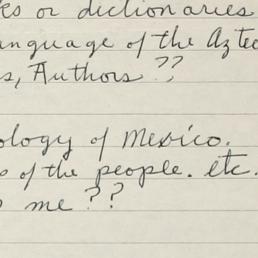 ks or dictionaries
anguage of the Aztec
s, Authors ??
ology of Mexico.
s of the people. etc.
o me ??